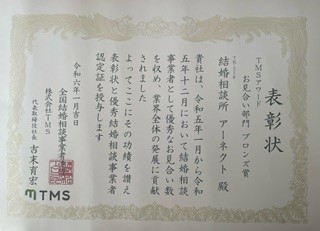 表彰状
TMSアワード
お見合い部門 ブロンズ賞
結婚相談所 アーネクト 殿
貴社は、令和五年一月から令和
五年十二月において結婚相談
事業者として優秀なお見合い数
を収め、業界全体の発展に貢献
されました
よってここにその功績を讃え
表彰状と優秀結婚相談事業者
認定証を授与します
令和六年一月吉日
全国結婚相談事業者
株式会社TMS
代表取締役社長 吉末育宏
TMS